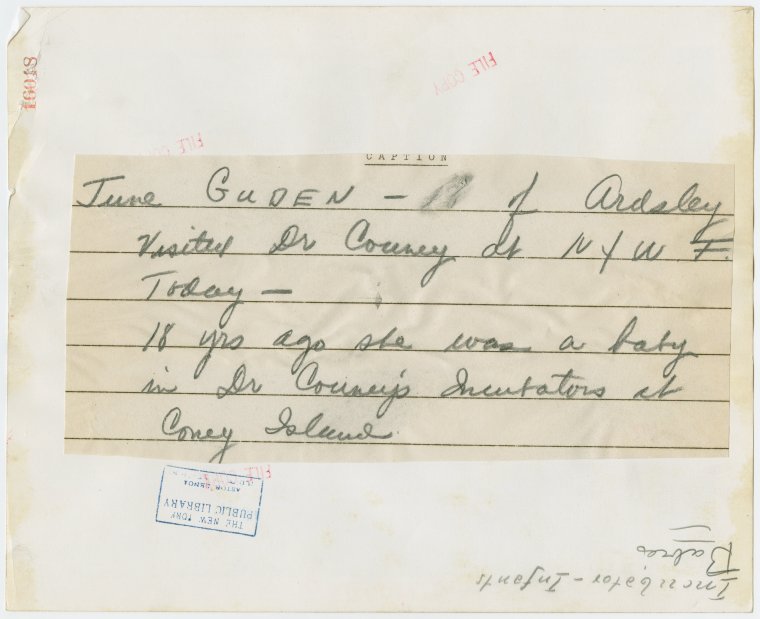 16048
FILE COPY
FILE
CAPTION
June GUDEN - of Ardsley
Visited Dr Couney at N Y W F.
Today -
18 yrs ago she was a baby
in Dr Couney's Incubators at
Coney Island
FILE
THE NEW YORK
PUBLIC LIBRARY
ASTOR, LENOX
Incubator - Infants
Babies